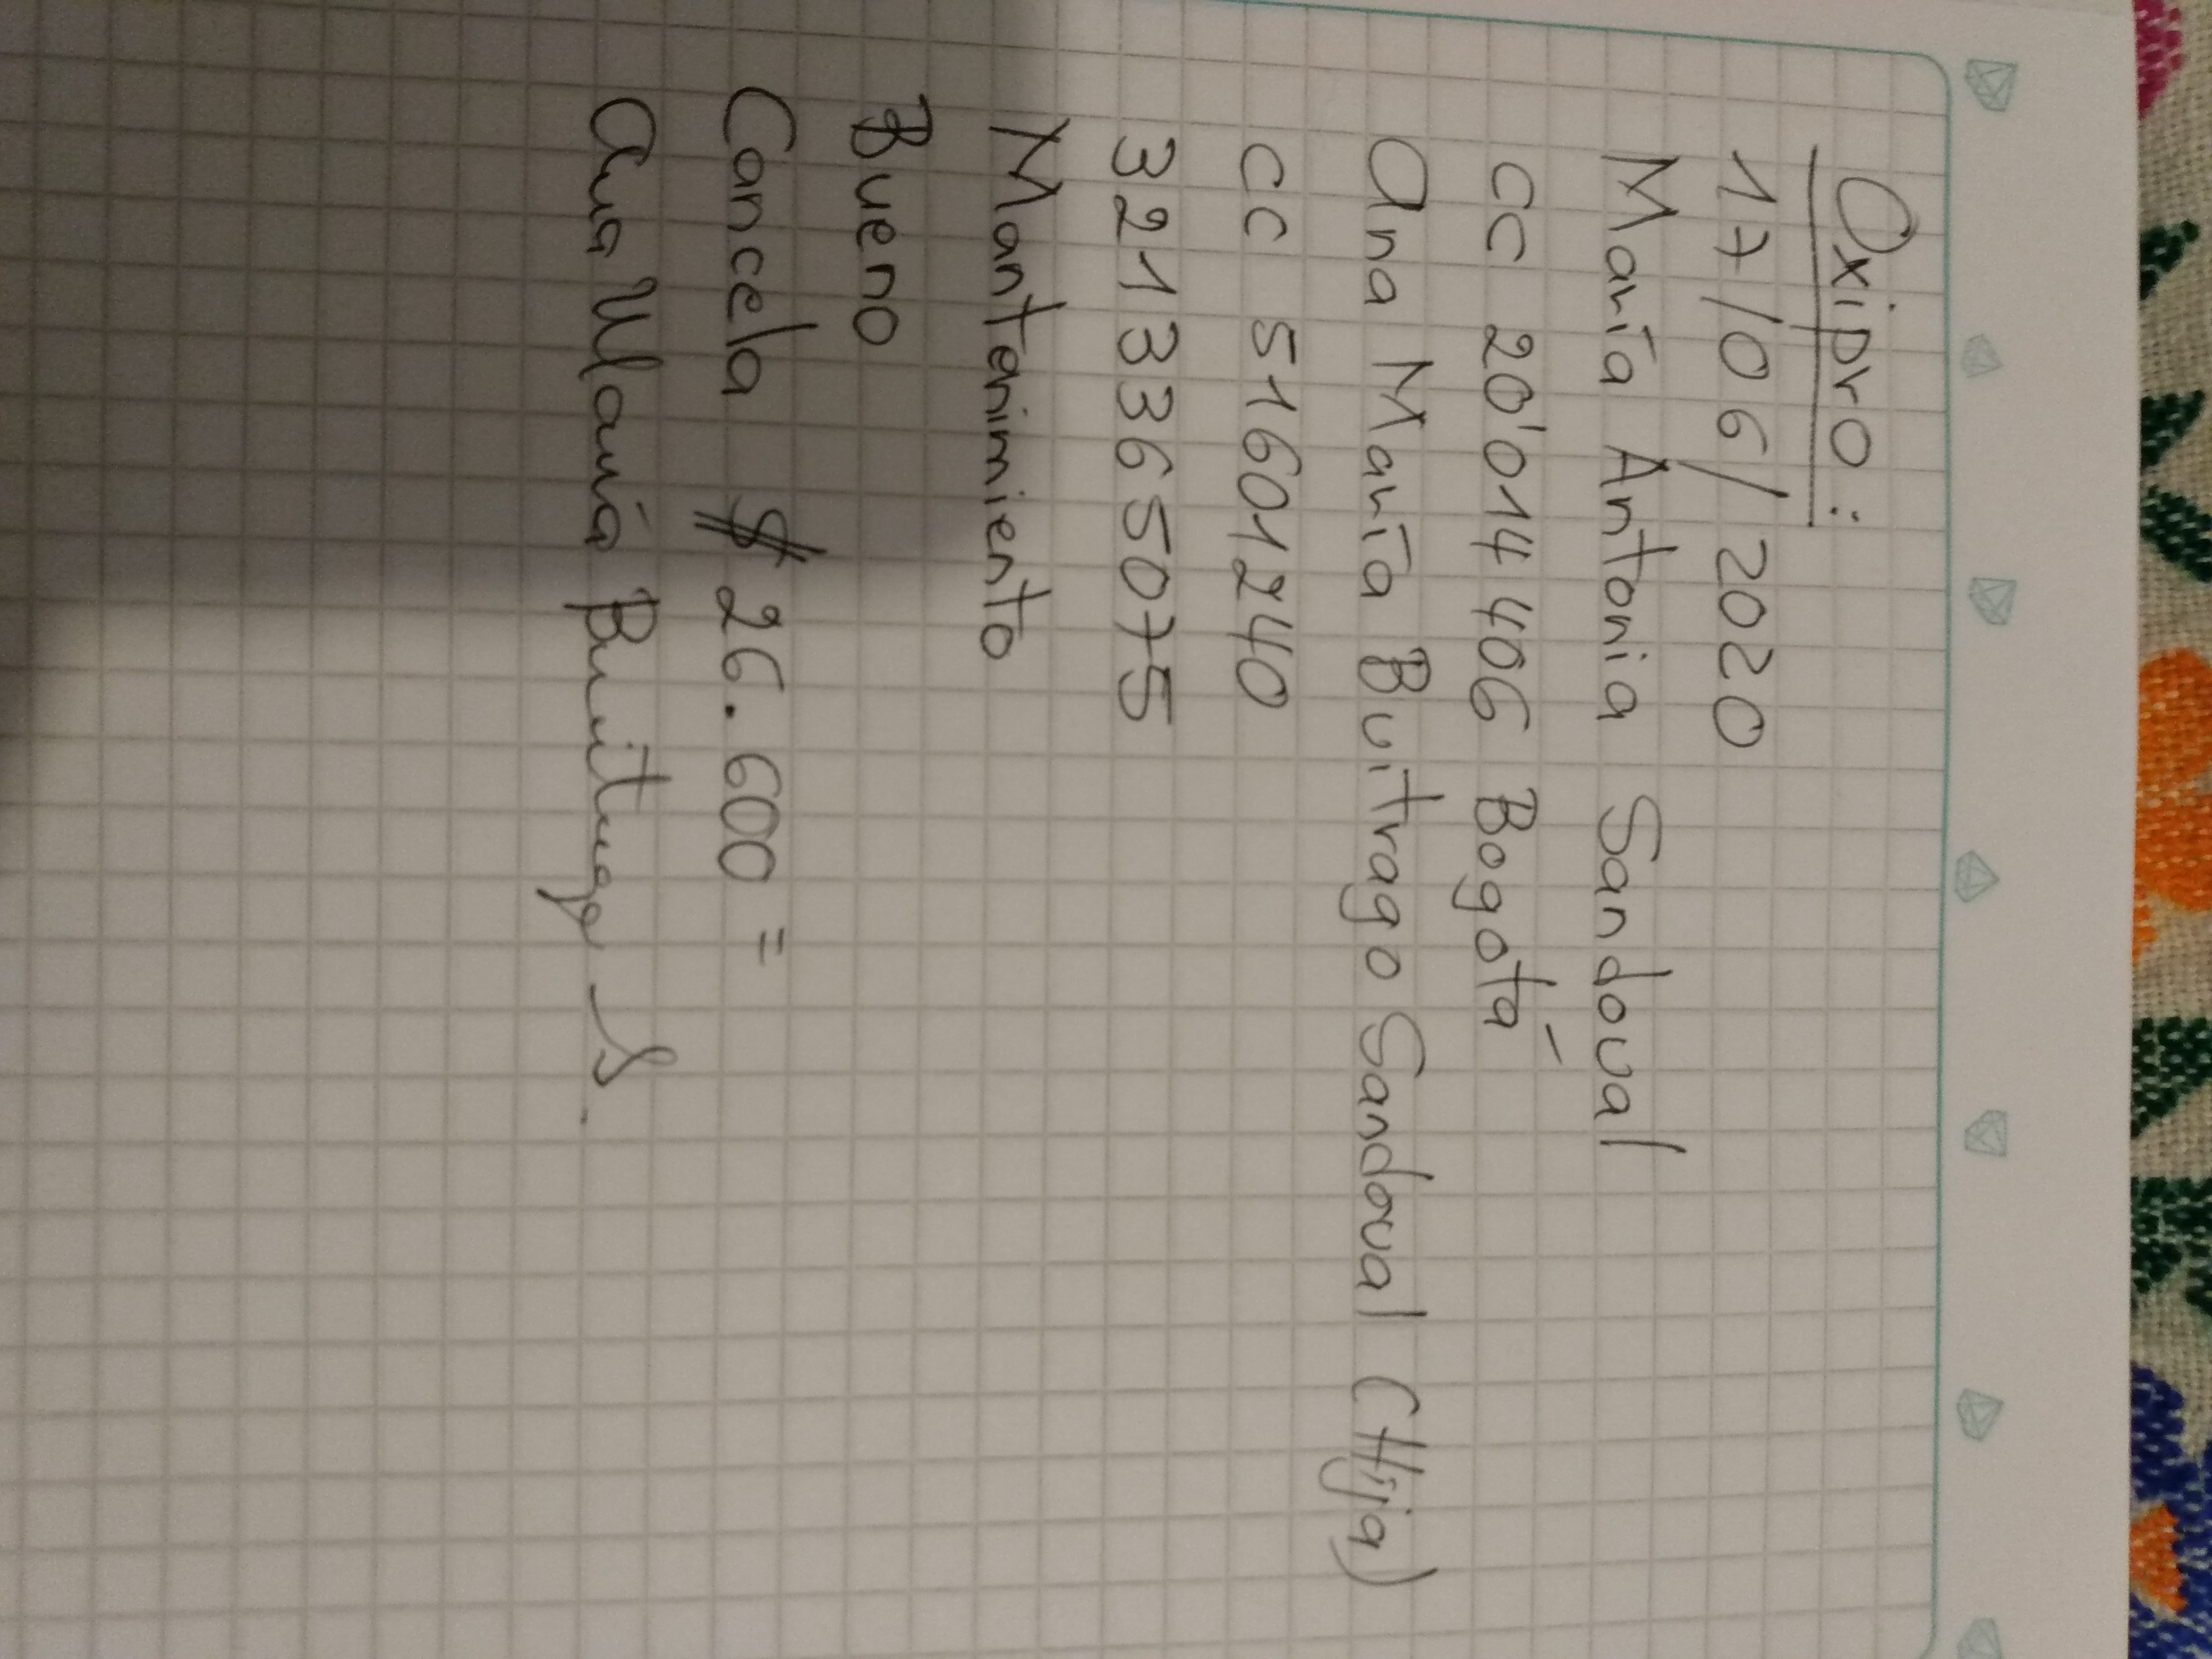 Oxipro:
17/06/2020
María Antonia Sandoval
CC 20'014406 Bogotá
Ana María Buitrago Sandoval (Hija)
CC 51601240
3213365075
Mantenimiento
Bueno
Cancela $26.600=
Ana María Buitrago S.